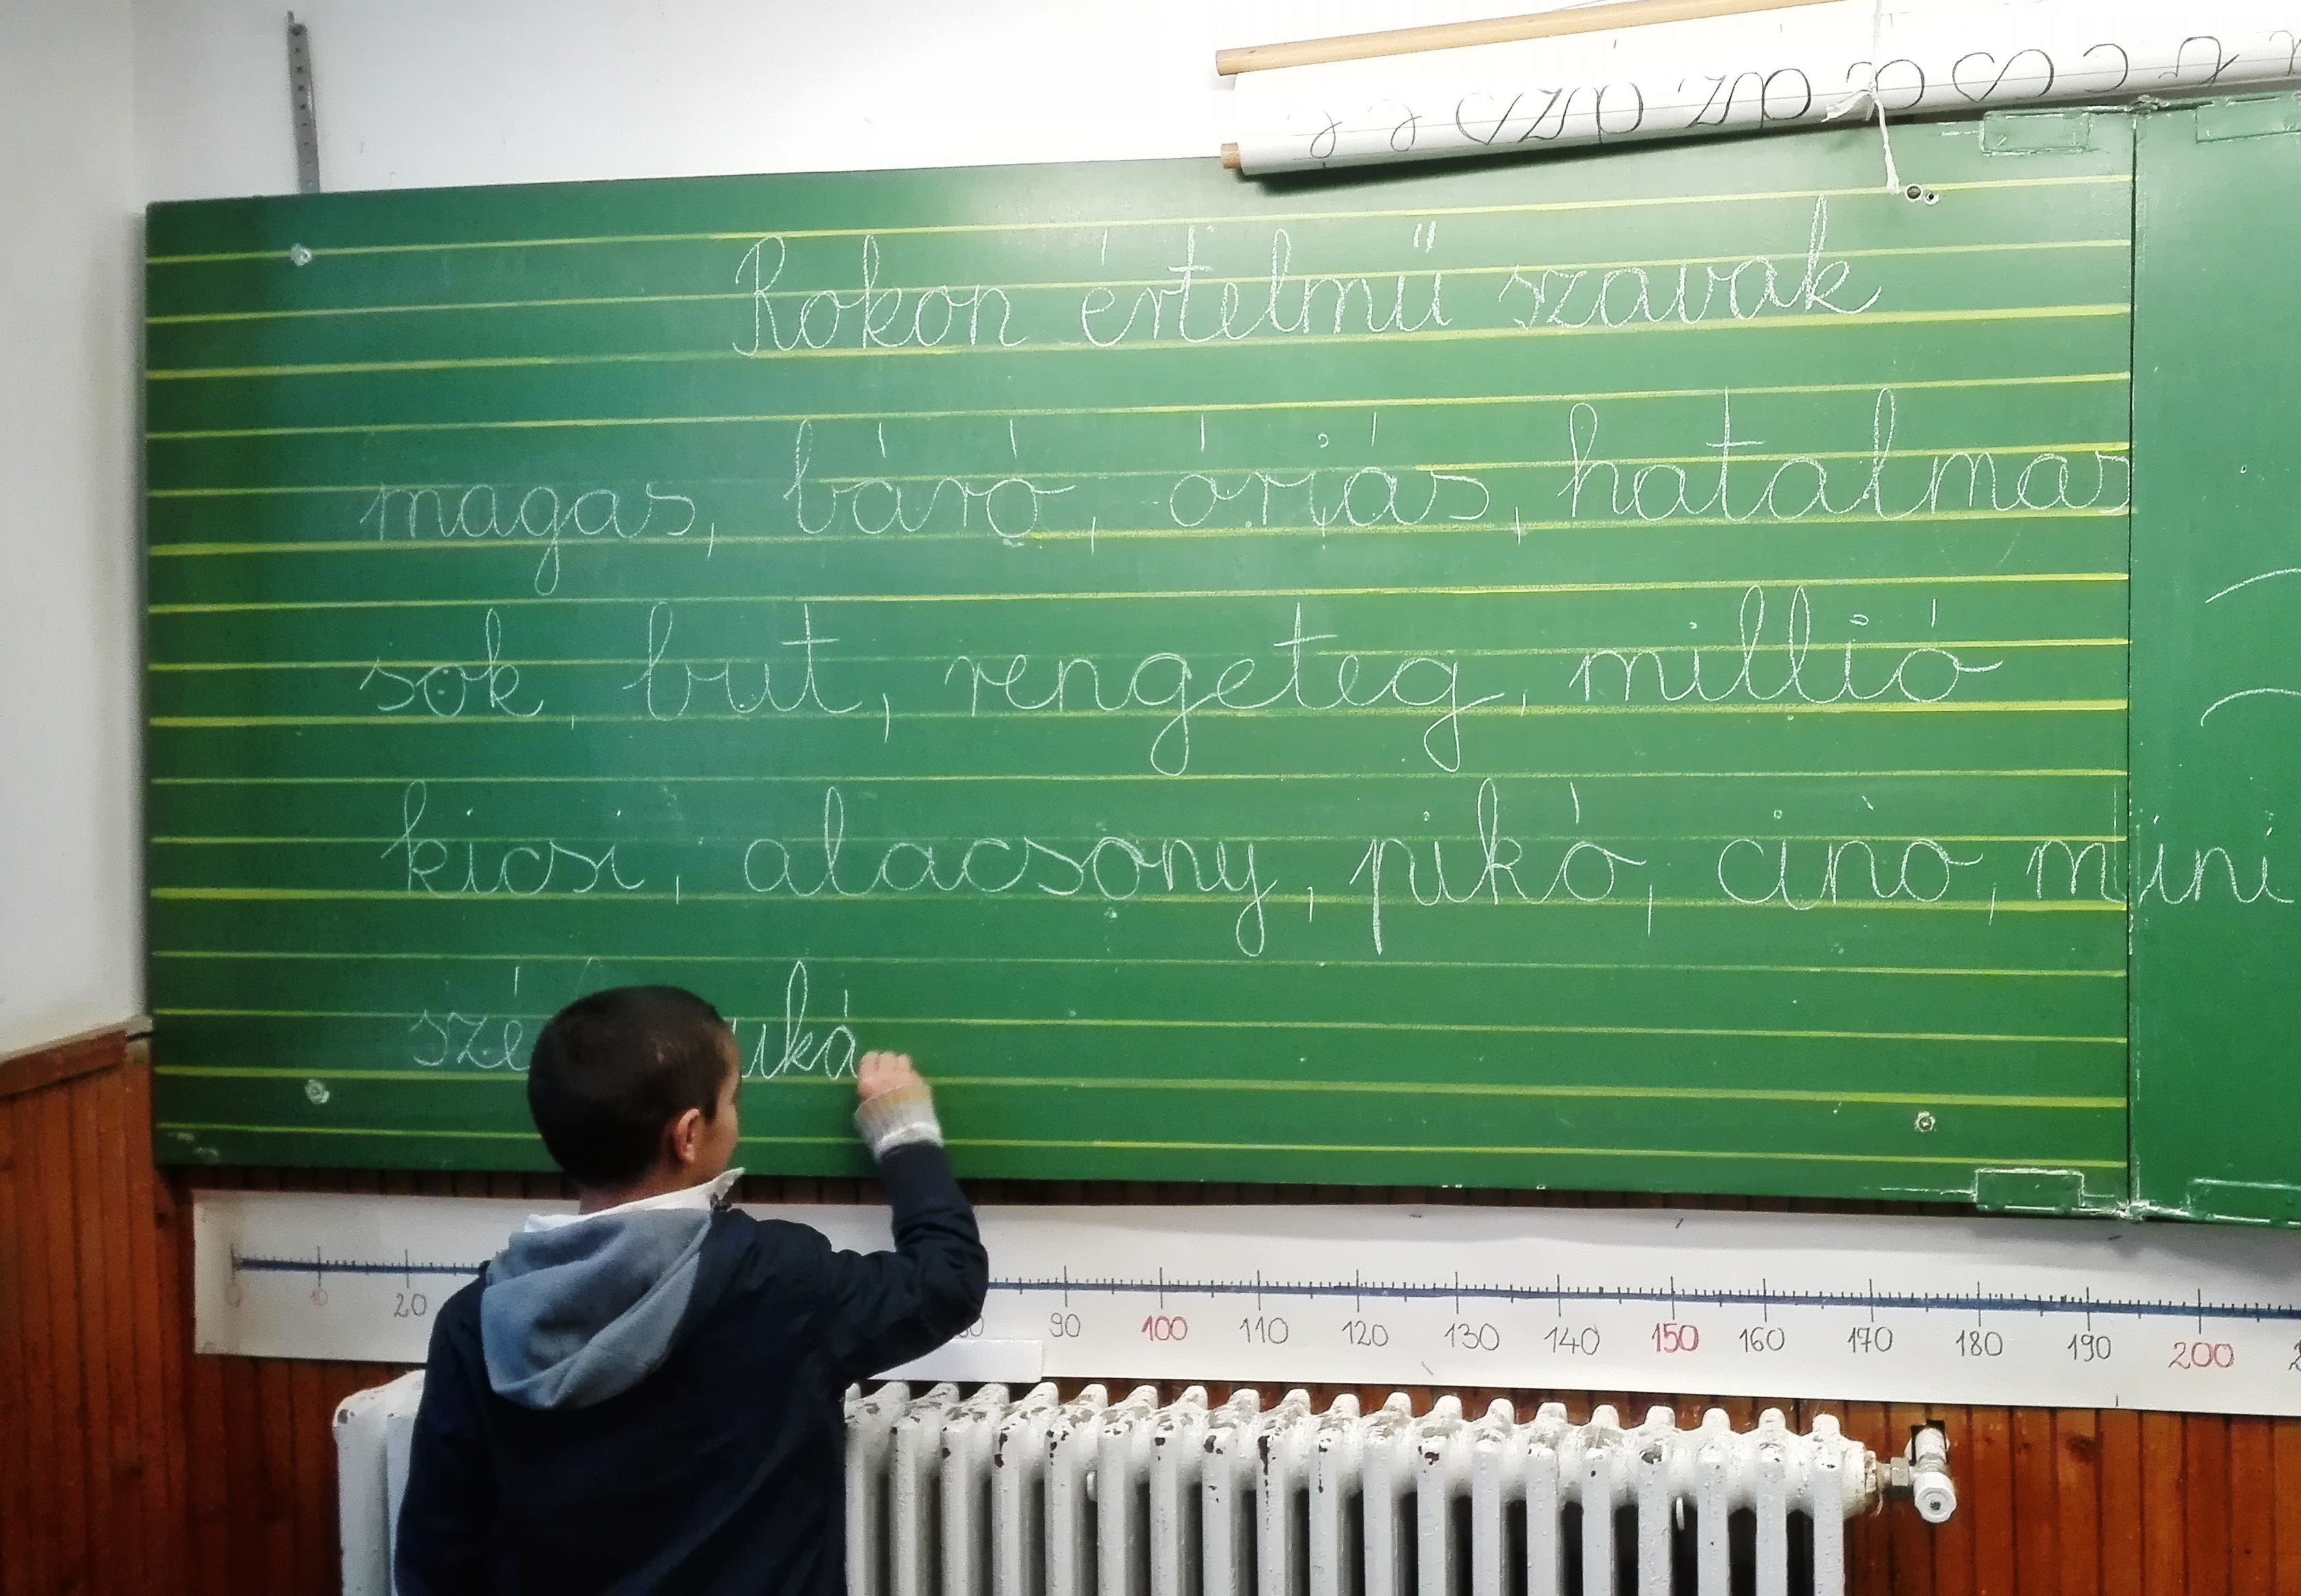 Rokon értelmű szavak
magas, báró, órjás, hatalmas
sok, but, rengeteg, millió
kicsi, alacsony, pikó, cino, mini
0 10 20 90 100 110 120 130 140 150 160 170 180 190 200